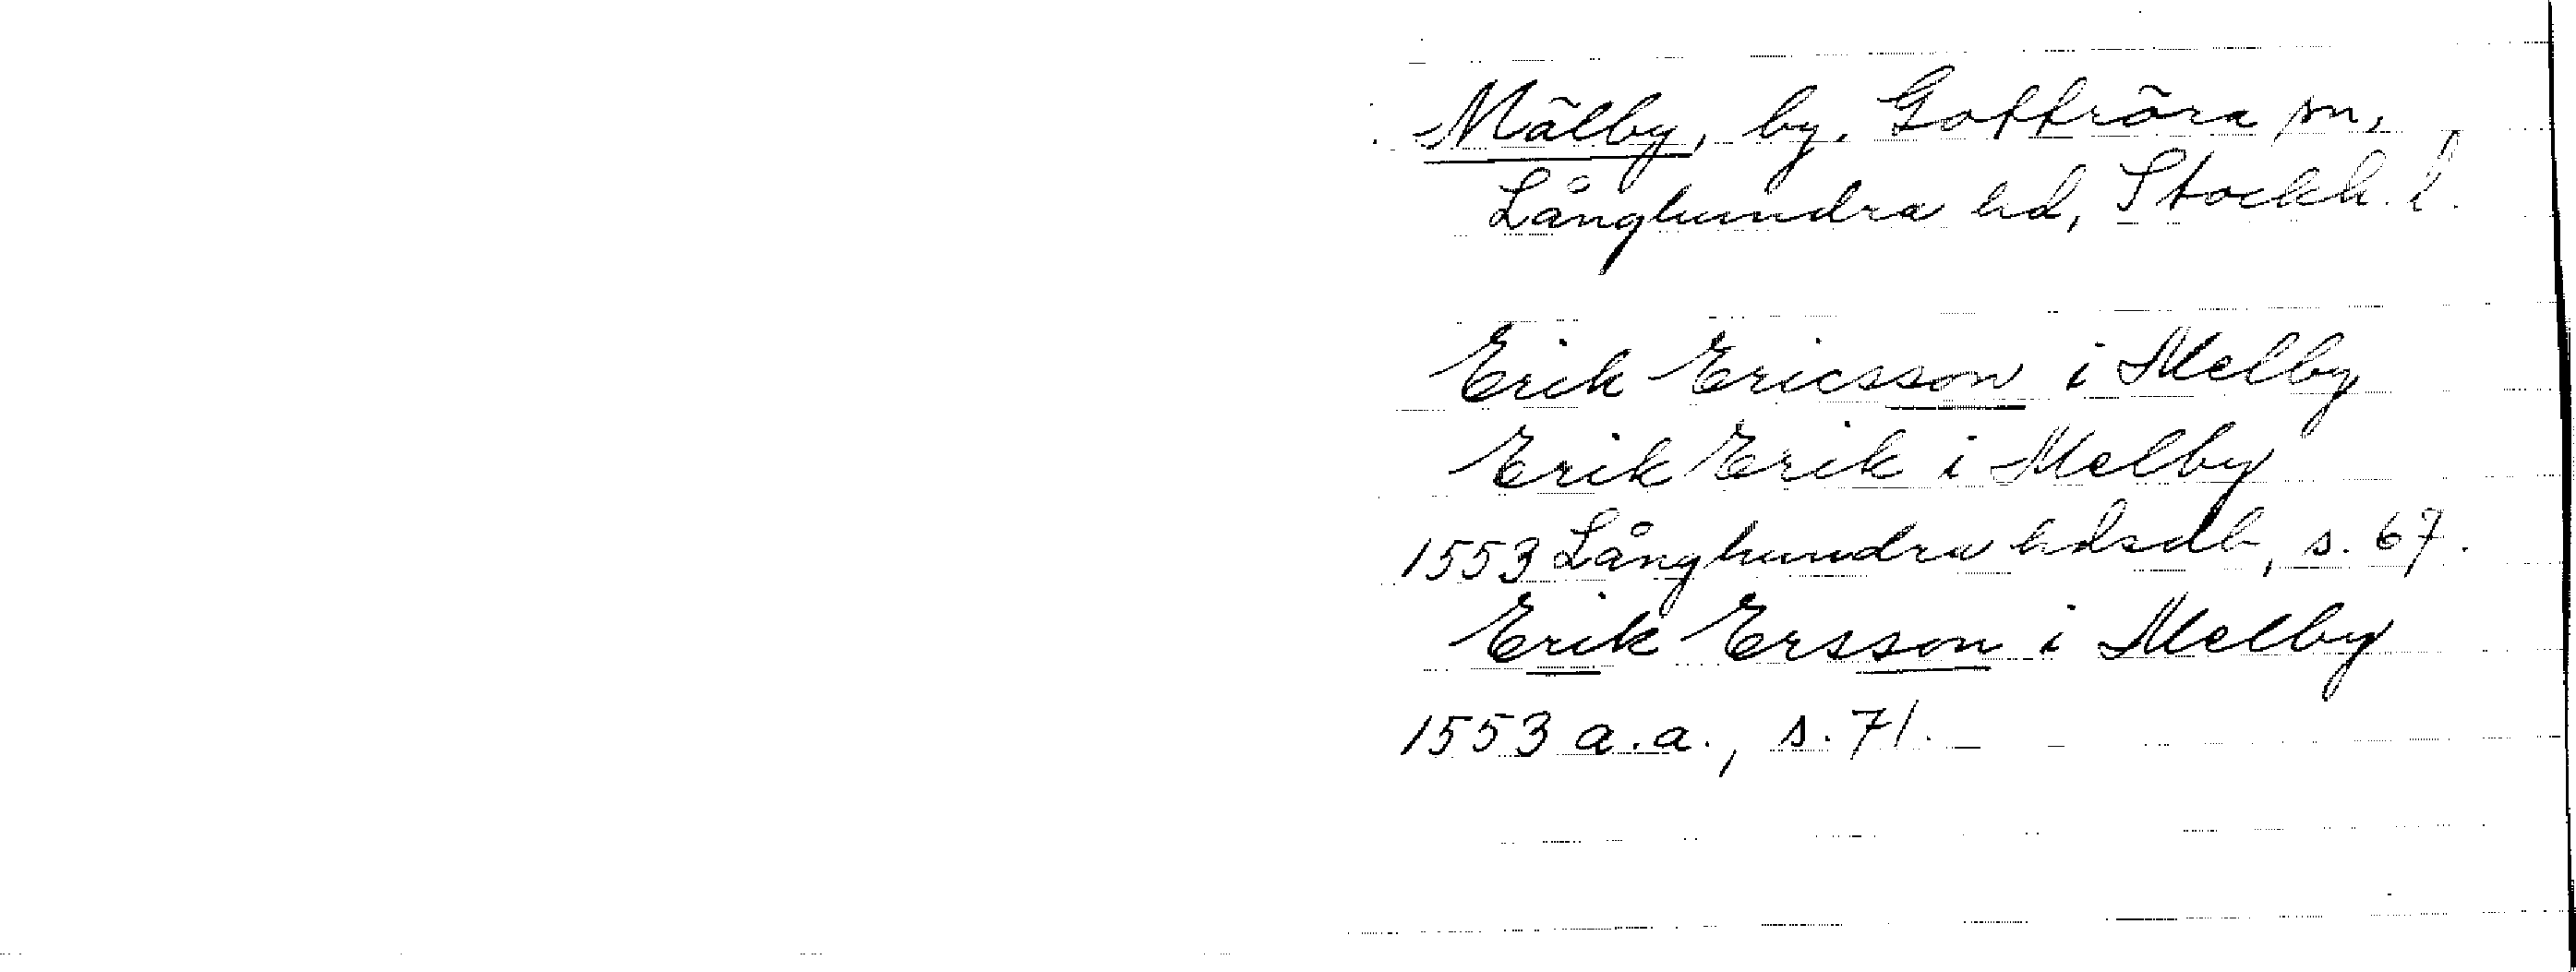 Mälby, by. Gottröra sn,
Långhundra hd, Stockh. l.
Erik Ericsson i Melby
Erik Erik i Melby
1553 Långhundra hdsdb, s. 67.
Erik Ersson i Melby
1553 a.a., s. 71.